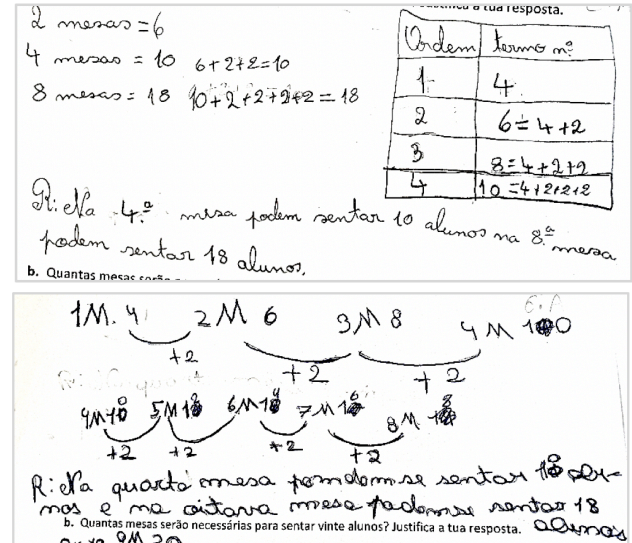 Justifica a tua resposta.
2 mesas = 6
4 mesas = 10 6+2+2=10
8 mesas = 18 10+2+2+2+2 = 18
Ordem termo nº
1 4
2 6=4+2
3 8=4+2+2
4 10=4+2+2+2
R: Na 4.ª mesa podem sentar 10 alunos na 8.ª mesa
podem sentar 18 alunos.
b. Quantas mesas serão
1M. 4 2M 6 3M 8 4M 10
+2 +2 +2
4M10 5M12 6M14 7M16 8M 18
+2 +2 +2 +2
R: Na quarta mesa pomdom se sentar 10 alu-
nos e na oitava mesa podemse sentar 18
alunos
b. Quantas mesas serão necessárias para sentar vinte alunos? Justifica a tua resposta.
9M 20